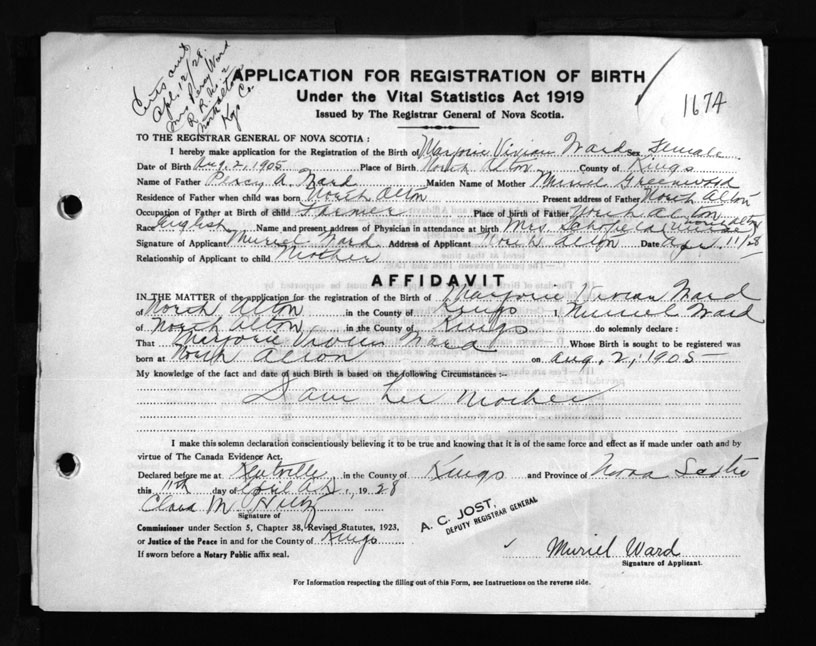 Certs sent
Apl. 12/28.
Mrs Percy Ward
R.R. No 2
North Alton
Kgs Co
APPLICATION FOR REGISTRATION OF BIRTH
Under the Vital Statistics Act 1919
Issued by The Registrar General of Nova Scotia.
1674
TO THE REGISTRAR GENERAL OF NOVA SCOTIA:
I hereby make application for the Registration of the Birth of Marjorie Vivian Ward Sex Female
Date of Birth Aug. 2, 1905 Place of Birth North Alton County of Kings
Name of Father Percy A. Ward Maiden Name of Mother Muriel Greenwood
Residence of Father when child was born North Alton Present address of Father North Alton
Occupation of Father at Birth of child Farmer Place of birth of Father North Alton
Race English Name and present address of Physician in attendance at birth Mrs Schofield (nurse) North Alton
Signature of Applicant Muriel Ward Address of Applicant North Alton Date Apr. 11/28
Relationship of Applicant to child Mother
AFFIDAVIT
IN THE MATTER of the application for the registration of the Birth of Marjorie Vivian Ward
of North Alton in the County of Kings I, Muriel Ward
of North Alton in the County of Kings do solemnly declare:
That Marjorie Vivian Ward Whose Birth is sought to be registered was
born at North Alton on Aug. 2, 1905
My knowledge of the fact and date of such Birth is based on the following Circumstances:-
I am her mother
I make this solemn declaration conscientiously believing it to be true and knowing that it is of the same force and effect as if made under oath and by
virtue of The Canada Evidence Act.
Declared before me at Kentville in the County of Kings and Province of Nova Scotia
this 11th day of April A.D., 1928
Clara M
Signature of
Commissioner under Section 5, Chapter 38, Revised Statutes, 1923,
or Justice of the Peace in and for the County of Kings
If sworn before a Notary Public affix seal.
A. C. JOST,
DEPUTY REGISTRAR GENERAL
Muriel Ward
Signature of Applicant.
For Information respecting the filling out of this Form, see Instructions on the reverse side.